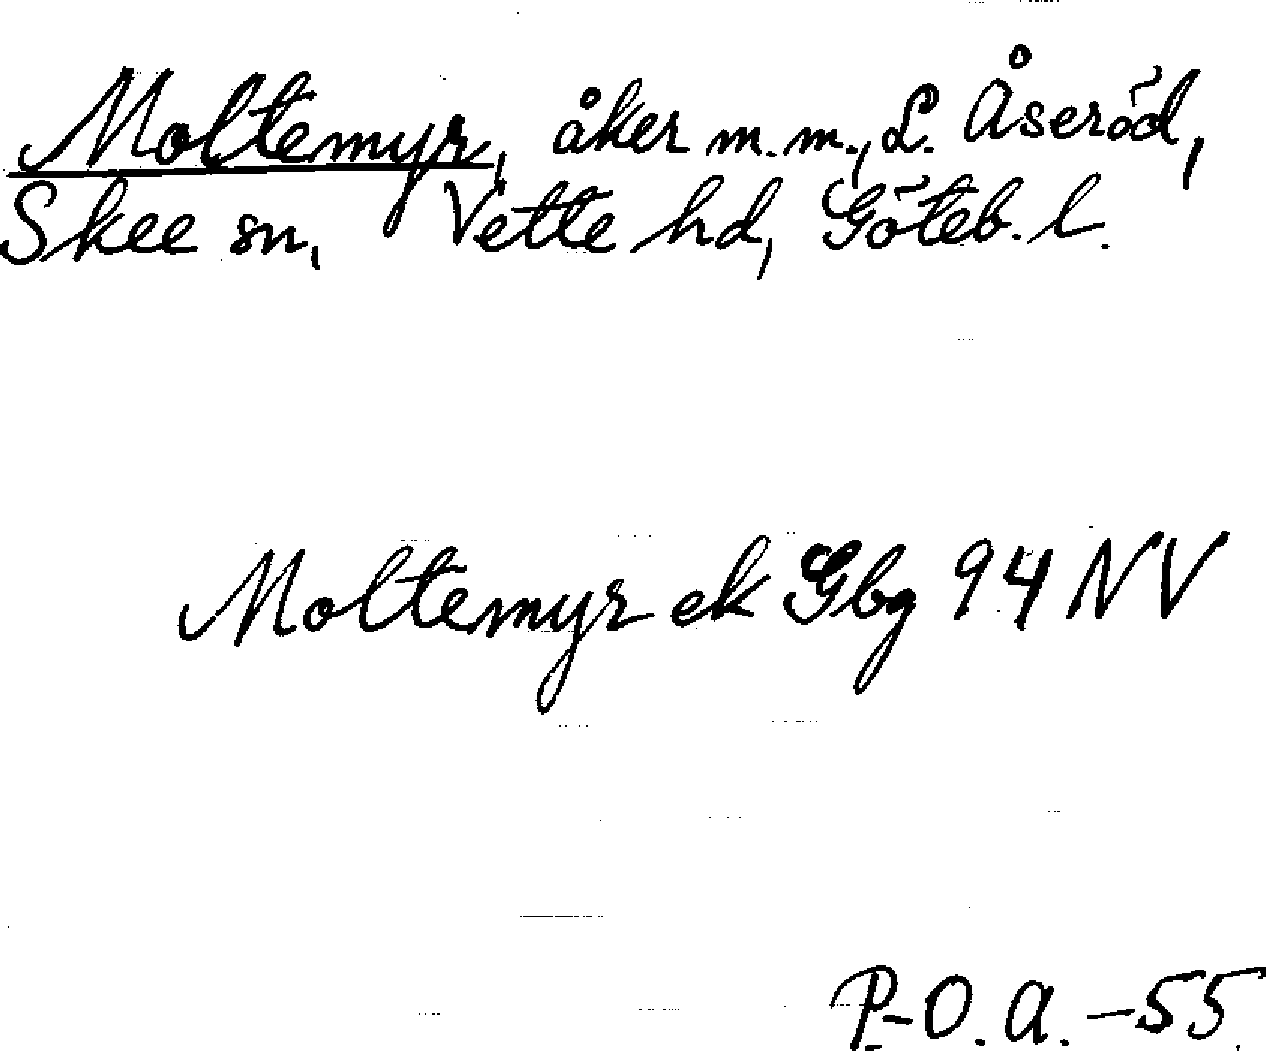 Moltemyr, åker m.m., L. Åseröd,
Skee sn, Vette hd, Göteb. l.
Moltemyr ek Gbg 94 NV
P-O. A. -55